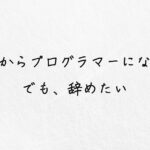 からプログラマーにな
でも、辞めたい